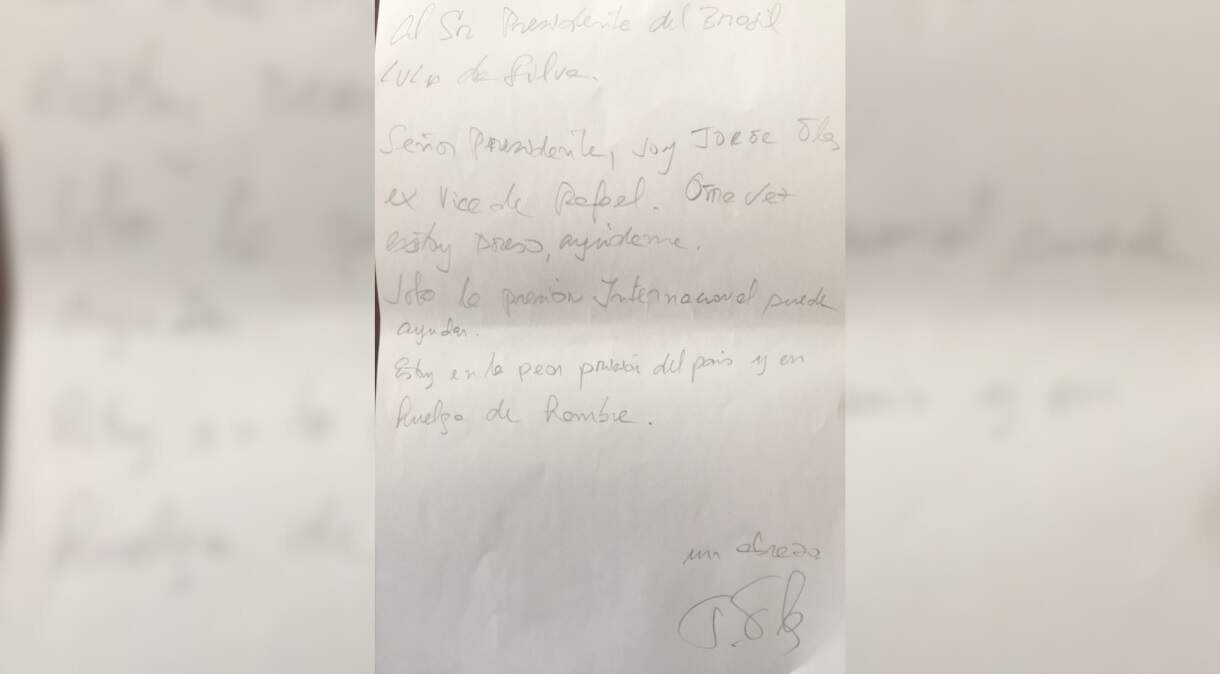 Al Sr Presidente del Brasil
LULA da Silva.
Señor Presidente, soy JORGE Glas
ex Vice de Rafael. Otra vez
estoy preso, ayúdeme.
Solo la presión Internacional puede
ayudar.
Estoy en la peor prisión del país y en
huelga de hambre.
un abrazo
J. Glas